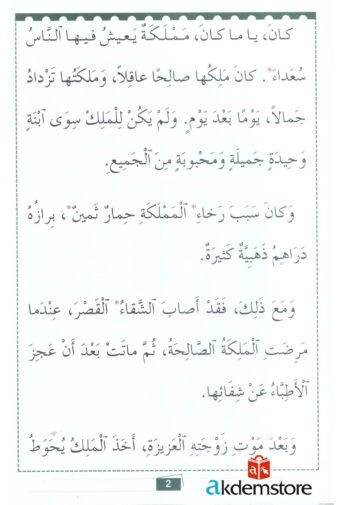 كانَ، يا ما كانَ، مَمْلَكَةٌ يَعيشُ فيها ٱلنَّاسُ
سُعَداءَ*. كانَ مَلِكُها صالِحًا عاقِلاً، وَمَلَكَتُها تَزْدادُ
جَمالاً، يَوْمًا بَعْدَ يَوْمٍ. وَلَمْ يَكُنْ لِلْمَلِكِ سِوَى ٱبْنَةٍ
وَحيدَةٍ جَميلَةٍ وَمَحْبوبَةٍ مِنَ ٱلْجَميعِ.
وَكانَ سَبَبَ رَخاءِ* ٱلْمَمْلَكَةِ حِمارٌ ثَمينٌ*، بِرازُهُ
دَراهِمُ ذَهَبِيَّةٌ كَثيرَةٌ.
وَمَعَ ذَلِكَ، فَقَدْ أَصابَ ٱلشَّقاءُ* ٱلْقَصْرَ، عِنْدَما
مَرِضَتِ ٱلْمَلِكَةُ ٱلصَّالِحَةُ، ثُمَّ ماتَتْ بَعْدَ أَنْ عَجِزَ
ٱلْأَطِبَّاءُ عَنْ شِفائِها.
وَبَعْدَ مَوْتِ زَوْجَتِهِ ٱلْعَزيزَةِ، أَخَذَ ٱلْمَلِكُ يُحَوِّطُ
2
akdemstore